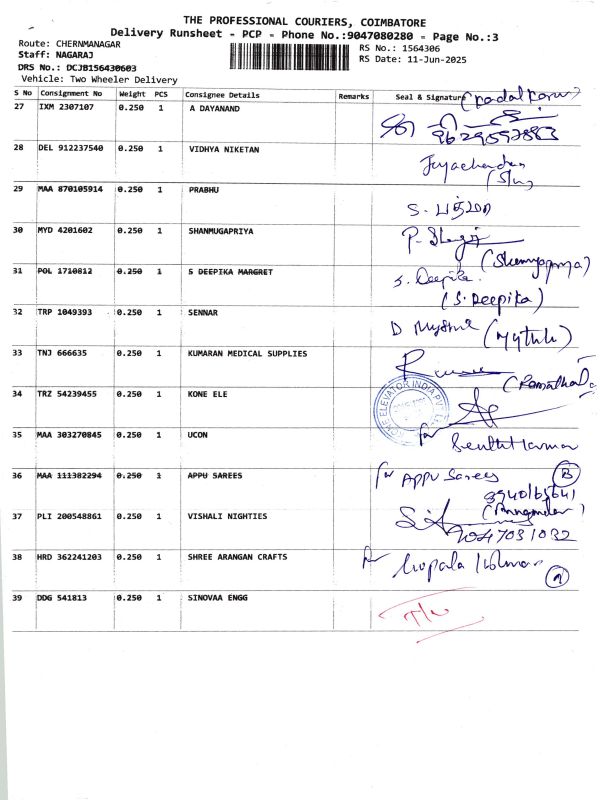 THE PROFESSIONAL COURIERS, COIMBATORE
Delivery Runsheet - PCP - Phone No.:9047080280 - Page No.:3
Route: CHERNMANAGAR
Staff: NAGARAJ
DRS No.: DCJB156430603
Vehicle: Two Wheeler Delivery
RS No.: 1564306
RS Date: 11-Jun-2025
S No Consignment No Weight PCS Consignee Details Remarks Seal & Signature
27 IXM 2307107 0.250 1 A DAYANAND
9629597883
28 DEL 912237540 0.250 1 VIDHYA NIKETAN Jayachandran
29 MAA 870105914 0.250 1 PRABHU S.
30 MYD 4201602 0.250 1 SHANMUGAPRIYA P.
31 POL 1710812 0.250 1 S DEEPIKA MARGRET S. Deepika
(S. Deepika)
32 TRP 1049393 0.250 1 SENNAR D
33 TNJ 666635 0.250 1 KUMARAN MEDICAL SUPPLIES
34 TRZ 54239455 0.250 1 KONE ELE KONE ELEVATOR INDIA PVT
35 MAA 303270845 0.250 1 UCON for Senthil Kumar
36 MAA 111382294 0.250 1 APPU SAREES for APPU Sarees
37 PLI 200548861 0.250 1 VISHALI NIGHTIES
9047031032
38 HRD 362241203 0.250 1 SHREE ARANGAN CRAFTS for Gopala Krishnan
39 DDG 541813 0.250 1 SINOVAA ENGG